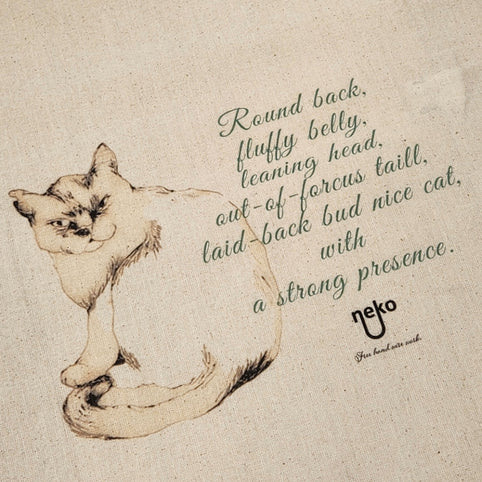 Round back,
fluffy belly,
leaning head,
out-of-forcus taill,
laid-back bud nice cat,
with
a strong presence.
neko
Free hand wire work.